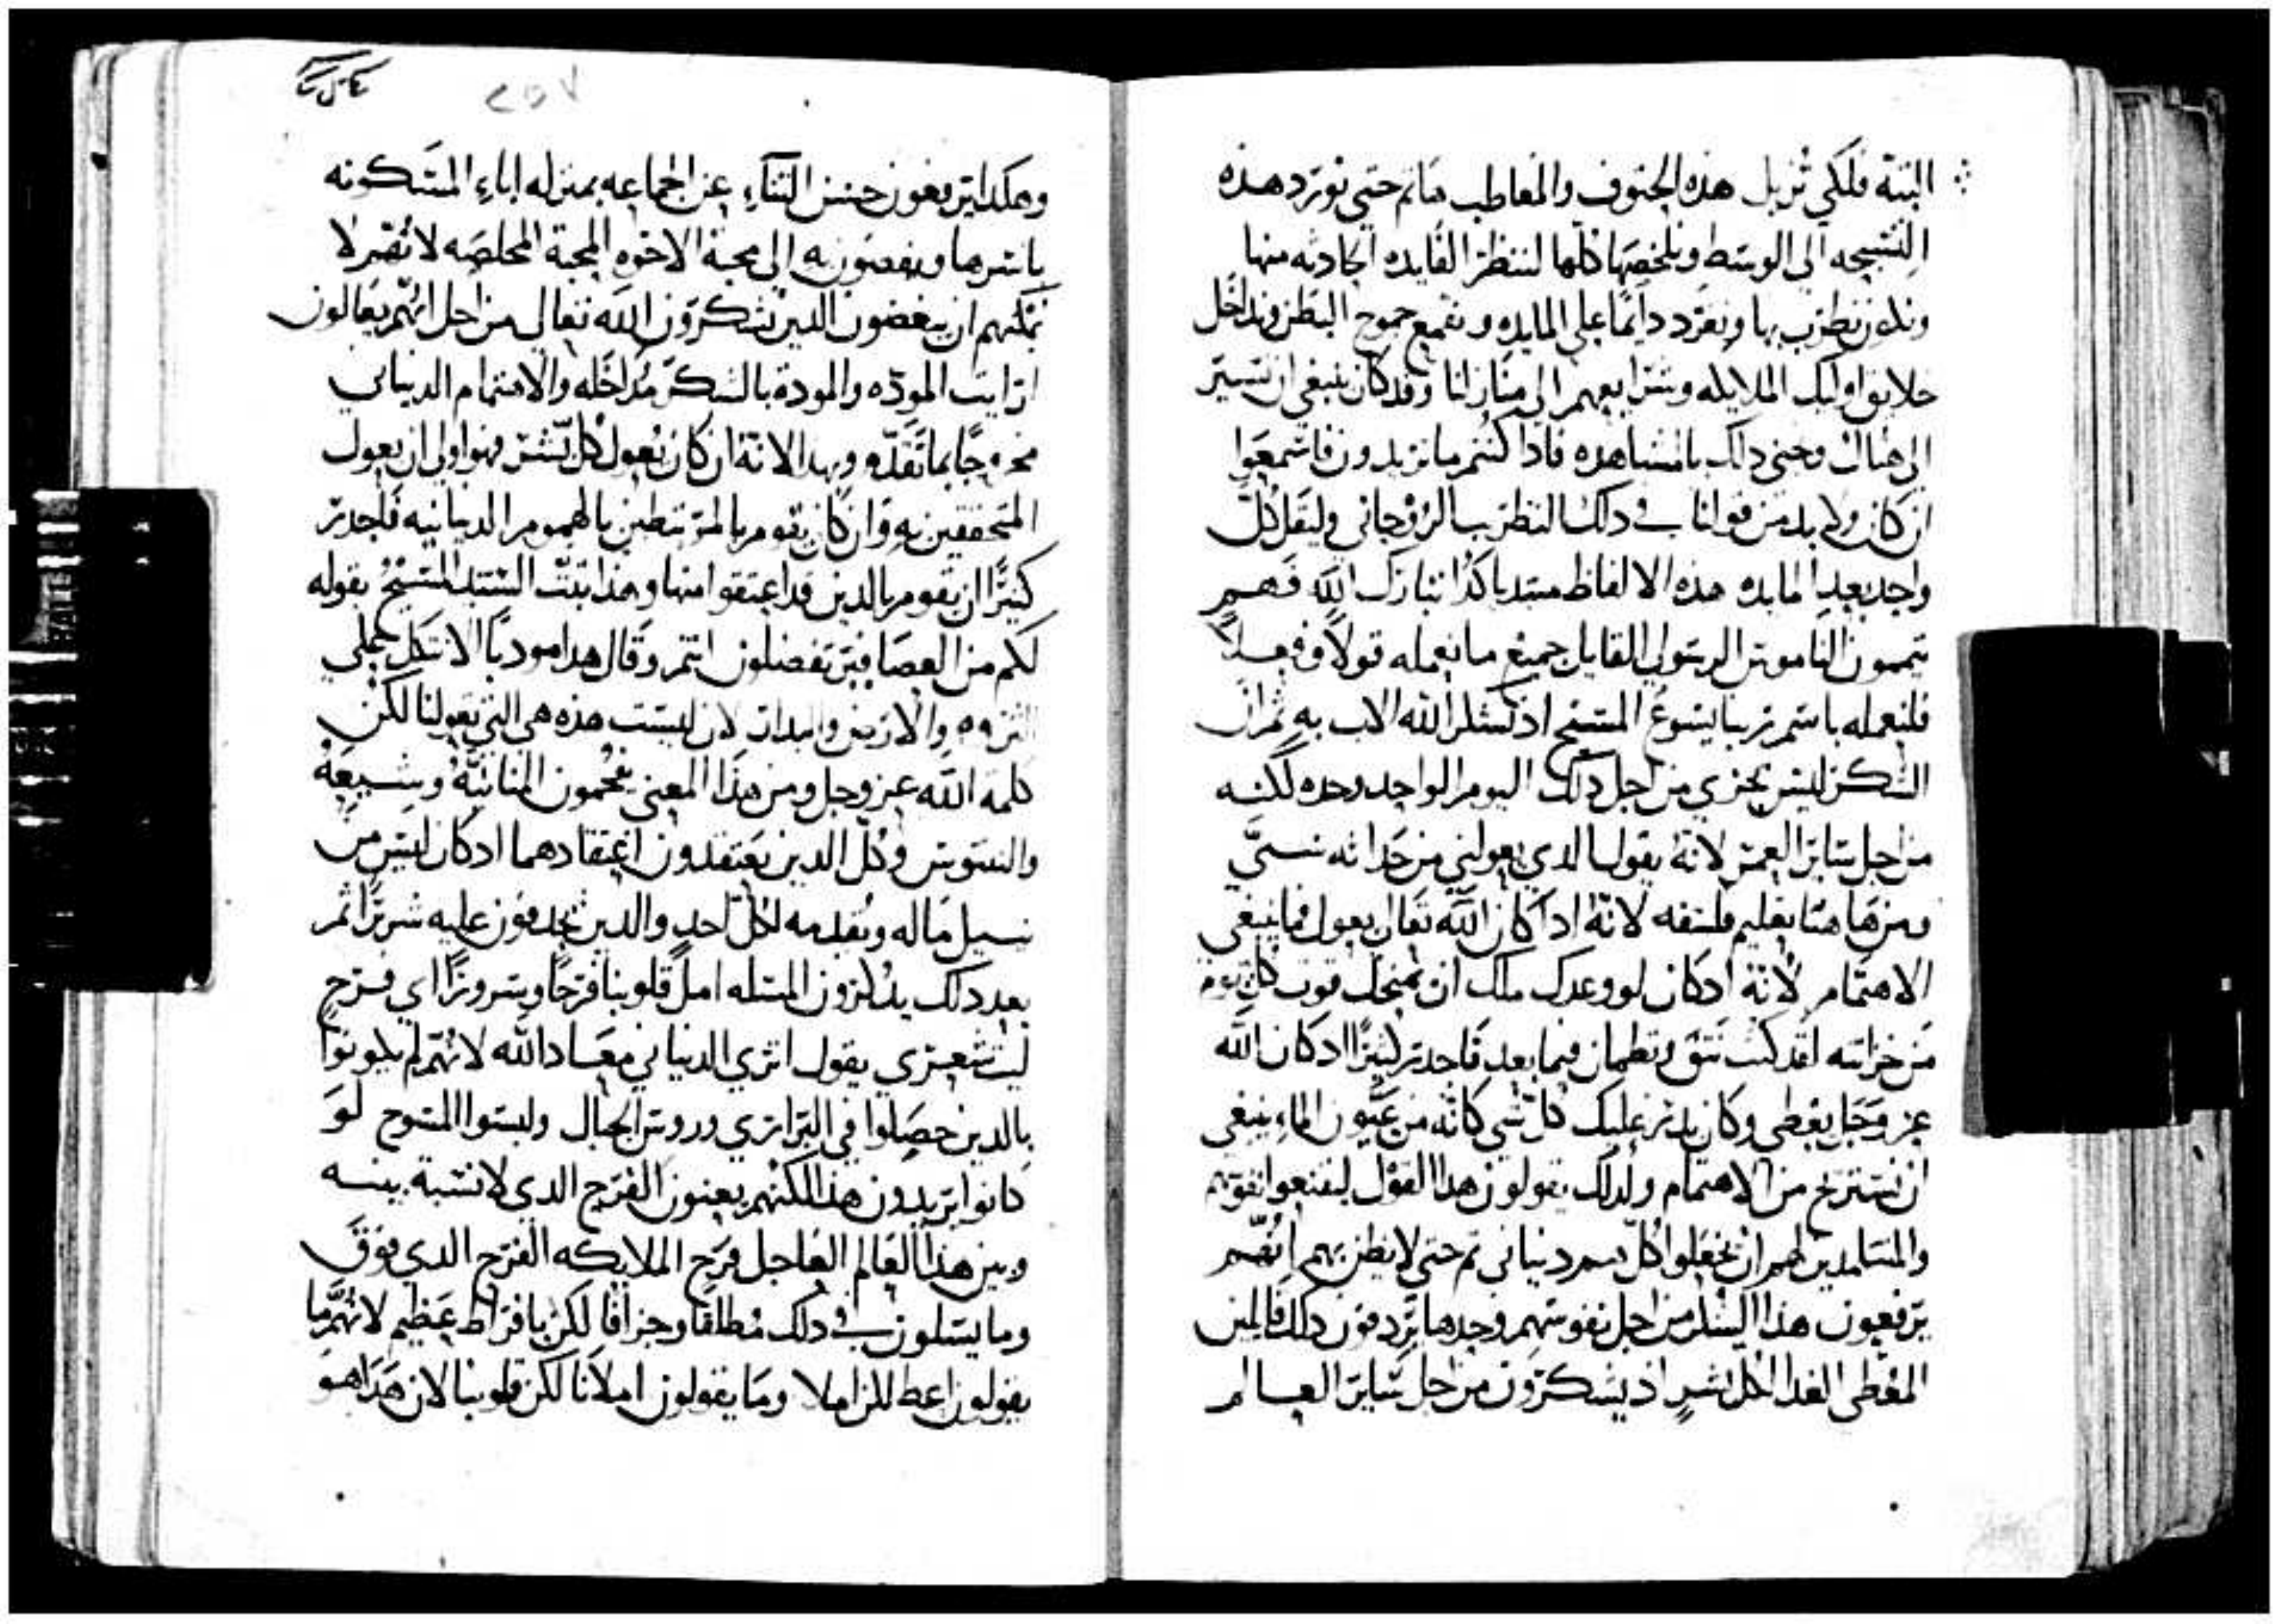 البتة فلكي نزيل هذه الحتوف والمعاطب هاتم حتي نورد هذه
التسبحه الي الوسط ونلخصها كلها لننظر الفايده الحادثه منها
ونكون نطرب بها ونغرد دايمًا علي المايده ونقمع جموح البطن وندخل
خلايق اوليك الملايكه وشرايعهم الي منازلنا وقد كان ينبغي ان نسير
الي هناك ونجني ذلك بالمشاهده فاذا كنتم ما تريدون فاسمعوا
ان كان ولا بد من قولنا في دلك النطرب الروحاني وليقل كل
واحد بعد المايده هذه الالفاظ مبتديا كذا تبارك الله فهم
يتممون الناموس الرسولي القايل جميع ما نعمله قولاً وفعلاً
فلنعمله باسم ربنا يسوع المسيح اد نشكر الله الاب به ثم ان
الشكر ليس يجزي من اجل دلك اليوم الواحد وحده لكنه
من اجل ساير العمر لانه يقول الدي يعولني من حداثه سني
ومن هاهنا تعليم فلسفه لانه اذا كان الله تعالي يعول فما ينبغي
الاهتمام لانه اد كان لو وعدك ملك ان يمنحك قوت كل يوم
من خزانته لقد كنت تثق وتطمان فيما بعد فاحدر كثيرًا اد كان الله
عز وجل يعطي وكان يدر عليك كل شي كانه من عيون الماء ينبغي
ان تستريح من الاهتمام ولدلك يقولون هدا القول ليقنعوا نفوسهم
والمتلمدين لهم ان يخلعوا كل هم دنياني ثم حتي لا يظن بهم انهم
يرفعون هدا الشكر من اجل نفوسهم وحدها يردفون دلك قايلين
المعطي الغدا لكل بشر اد يشكرون من اجل ساير العالم
وهكدا يرفعون حسن الثناء عن الجماعه بمنزله اباء المسكونه
باسرها ويفضون به الي محبة الاخوه المحبة المخلصه لانه لا
يمكنهم ان يبغضون الدين يشكرون الله تعالي من اجل انهم يعالون
ارايت الموده والمودة بالشكر مداخله والاهتمام الدنياني
مخروجًا بما تقدم وبهدا لانه ان كان يعول كل بشر فهو اولي ان يعول
المتحققين به وان كان يقوم بالمرتبطين بالهموم الدنيانيه فاحدر
كثيرًا ان يقوم بالدين قد اعتقوا منها وهذا يثبت السيد المسيح بقوله
لكم من العصافير تفضلون انتم وقال هدا مودبًا الا نتكل علي
الثروه والارض والبدار لان ليست هذه هي التي تعولنا لكن
كلمة الله عز وجل ومن هذا المعني يفحمون المنانيه وشيعة
والنتوس وكل الدين يعتقدون اعتقادهما اد كان ليس من
يبدل ماله ويقدمه لكل احد والدين يجدفون عليه شريرًا ثم
بعد دلك يدكرون المسله املا قلوبنا فرحًا وسرورًا اي فرح
ليت شعري يقول اتري الدنياني معاد الله لانهم لم يكونوا
بالدين حصلوا في البراري وروس الجبال ولبسوا المسوح لو
كانوا يريدون هذا لكنهم يعنون الفرح الدي لا نسبة بينه
وبين هذا العالم العاجل فرح الملايكه الفرح الدي فوق
وما يسلون في دلك مطلقا وجزافا لكن بافراط عظيم لانهم ما
يقولون اعط لكن املا وما يقولون املانا لكن قلوبنا لان هدا هو